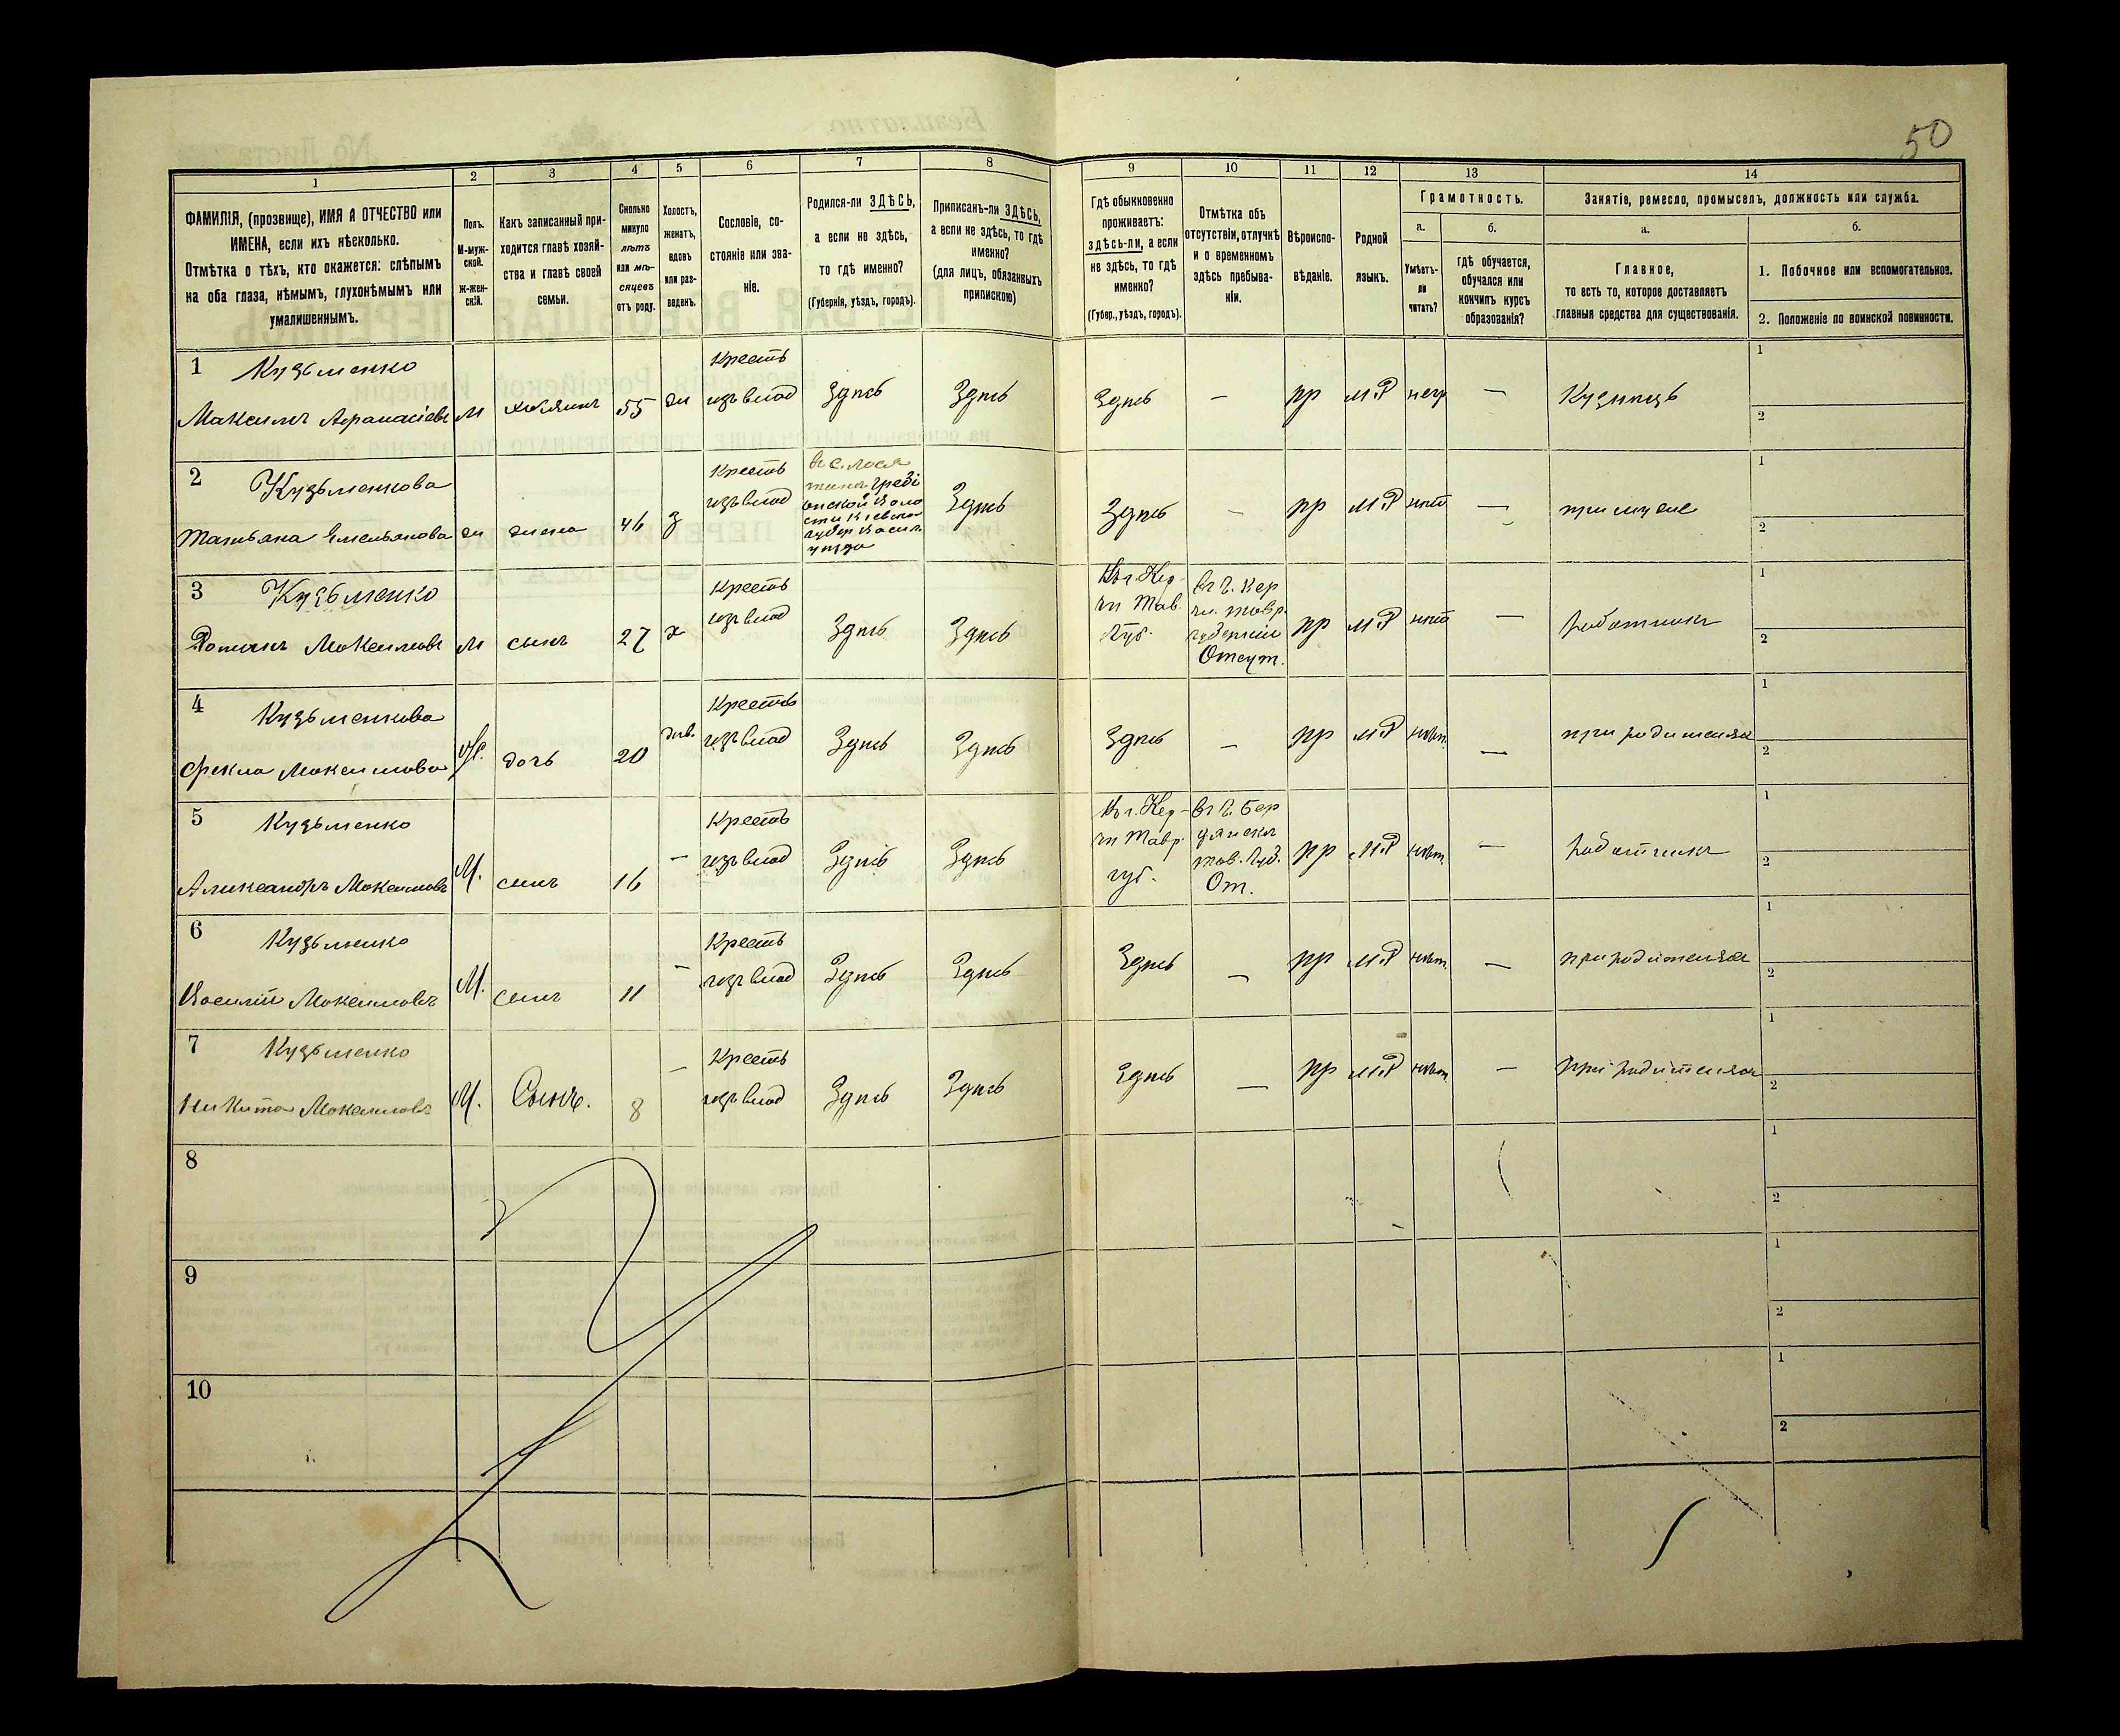 50
1 2 3 4 5 6 7 8 9 10 11 12 13 14
ФАМИЛІЯ, (прозвище), ИМЯ И ОТЧЕСТВО или
ИМЕНА, если ихъ нѣсколько.
Отмѣтка о тѣхъ, кто окажется: слѣпымъ
на оба глаза, нѣмымъ, глухонѣмымъ или
умалишеннымъ.
Полъ.
М-муж-
ской.
Ж-жен-
скій.
Какъ записанный при-
ходится главѣ хозяй-
ства и главѣ своей
семьи.
Сколько
минуло
лѣтъ
или мѣ-
сяцевъ
отъ роду.
Холостъ,
женатъ,
вдовъ
или раз-
веденъ.
Сословіе, со-
стояніе или зва-
ніе.
Родился-ли ЗДѢСЬ,
а если не здѣсь,
то гдѣ именно?
(Губернія, уѣздъ, городъ).
Приписанъ-ли ЗДѢСЬ,
а если не здѣсь, то гдѣ
именно?
(для лицъ, обязанныхъ
припискою)
Гдѣ обыкновенно
проживаетъ:
здѣсь-ли, а если
не здѣсь, то гдѣ
именно?
(Губер., уѣздъ, городъ).
Отмѣтка объ
отсутствіи, отлучкѣ
и о временномъ
здѣсь пребыва-
ніи.
Вѣроиспо-
вѣданіе.
Родной
языкъ.
Грамотность.
а.
Умѣетъ-
ли
читать?
б.
гдѣ обучается,
обучался или
кончилъ курсъ
образованія?
Занятіе, ремесло, промыселъ, должность или служба.
а.
Главное,
то есть то, которое доставляетъ
главныя средства для существованія.
б.
1. Побочное или вспомогательное.
2. Положеніе по воинской повинности.
1 Кузьменко Кресть 1
Максимъ Афанасіевъ м хозяинъ 55 ж изъ влад Здѣсь Здѣсь Здѣсь — пр МР негр — Кузнецъ 2
2 Кузьменкова Кресть 1
Татьяна Емельянова ж жена 46 з изъ влад Здѣсь Здѣсь — пр МР нѣт — при муже 2
3 Кузьменко Кресть 1
Романъ Максимовъ м сынъ 27 х изъ влад Здѣсь Здѣсь
въ г. Кер-
чи Тав.
Губ.
въ г. Кер
чи. тавр.
губерніи
Отсут.
пр МР нѣт — работникъ 2
4 Кузьменкова Кресть 1
Фекла Максимова Ж. дочь 20 дѣв. изъ влад Здѣсь Здѣсь Здѣсь — пр МР нѣт. — при родителях 2
5 Кузьменко Кресть 1
Александръ Максимовъ М. сынъ 16 — изъ влад Здѣсь Здѣсь
въ г. Кер-
чи Тавр.
губ.
въ г. Бер
дянскъ
тав. губ.
От.
пр МР нѣт. — работникъ 2
6 Кузьменко Кресть 1
Василій Максимовъ М. сынъ 11 — изъ влад Здѣсь Здѣсь Здѣсь — пр МР нѣт. — при родителях 2
7 Кузьменко Кресть 1
Никита Максимовъ М. Сынъ. 8 — изъ влад Здѣсь Здѣсь Здѣсь — пр МР нѣт — при родителях 2
8 1
2
9 1
2
10 1
2